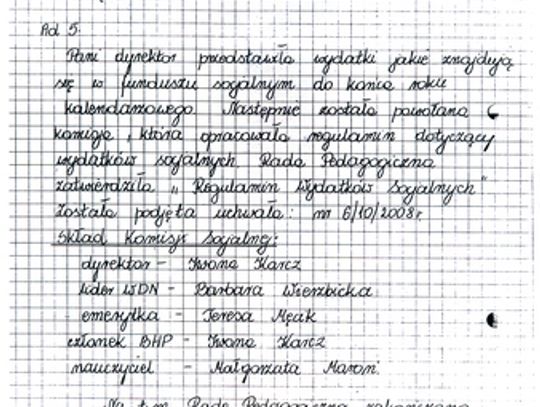 Ad 5.
Pani dyrektor przedstawiła wydatki jakie znajdują
się w funduszu socjalnym do końca roku
kalendarzowego. Następnie została powołana
komisja, która opracowała regulamin dotyczący
wydatków socjalnych. Rada Pedagogiczna
zatwierdziła „Regulamin Wydatków Socjalnych"
Została podjęta uchwała: nr 6/10/2008r
Skład Komisji Socjalnej:
dyrektor - Iwona Karcz
lider WDN - Barbara Wierzbicka
emerytka - Teresa
członek BHP - Iwona Karcz
nauczyciel - Małgorzata Maroń
Na tym Radę Pedagogiczną zakończono